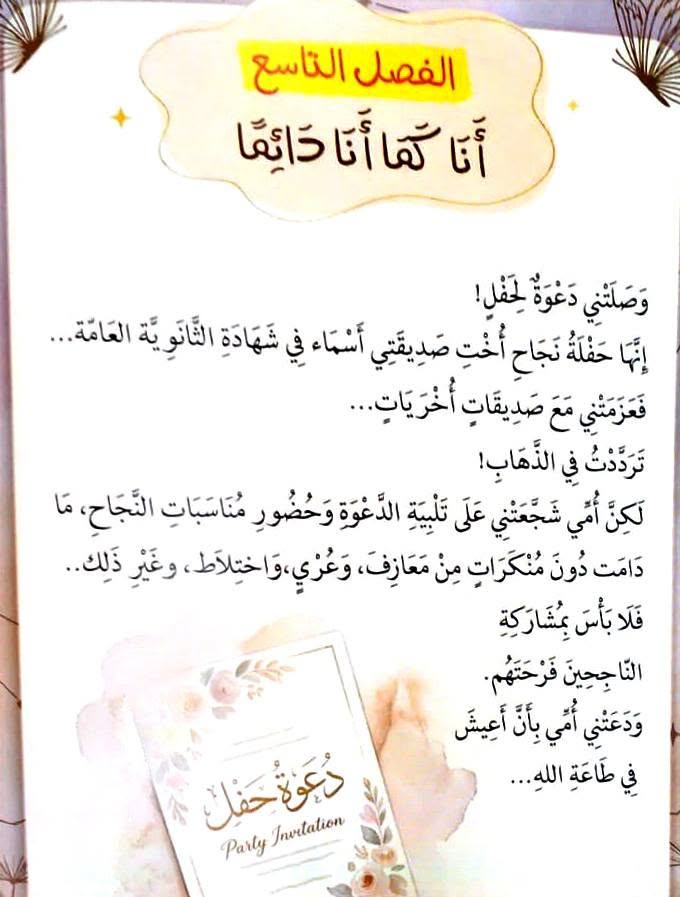 الفصل التاسع
أَنَا كَمَا أَنَا دَائِمًا
وَصَلَتْنِي دَعْوَةٌ لِحَفْلٍ!
إِنَّهَا حَفْلَةُ نَجَاحِ أُخْتِ صَدِيقَتِي أَسْمَاء فِي شَهَادَةِ الثَّانَوِيَّة العَامّة...
فَعَزَمَتْنِي مَعَ صَدِيقَاتٍ أُخْرَيَاتٍ...
تَرَدَّدْتُ فِي الذَّهَابِ!
لَكِنَّ أُمِّي شَجَّعَتْنِي عَلَى تَلْبِيَةِ الدَّعْوَةِ وَحُضُورِ مُنَاسَبَاتِ النَّجَاحِ، مَا
دَامَت دُونَ مُنْكَرَاتٍ مِنْ مَعَازِفَ، وَعُرْيٍ،وَاختِلاَط، وغَيْرِ ذَلِك..
فَلَا بَأْسَ بِمُشَارَكَةِ
النّاجِحِينَ فَرْحَتَهُم.
وَدَعَتْنِي أُمِّي بِأَنَّ أَعِيشَ
فِي طَاعَةِ اللهِ...
دُعَوةُ حَفْلِ
Party Invitation